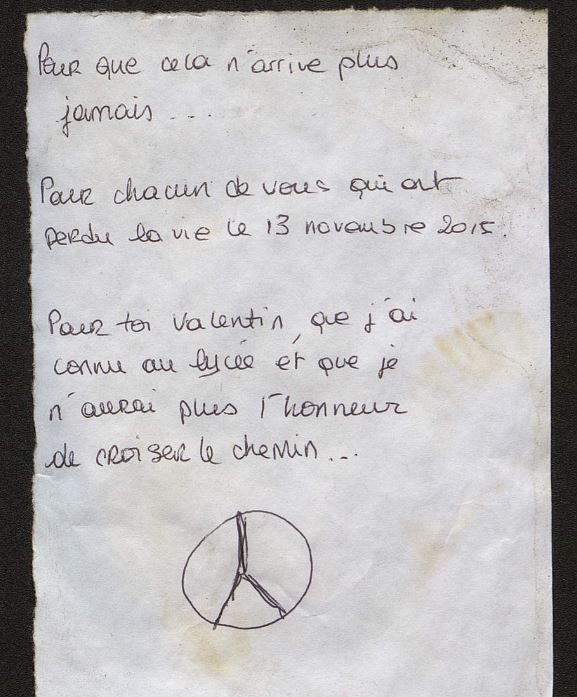 Pour que cela n'arrive plus
jamais...
Pour chacun de vous qui ont
perdu la vie le 13 novembre 2015.
Pour toi Valentin, que j'ai
connu au lycée et que je
n'aurai plus l'honneur
de croiser le chemin...